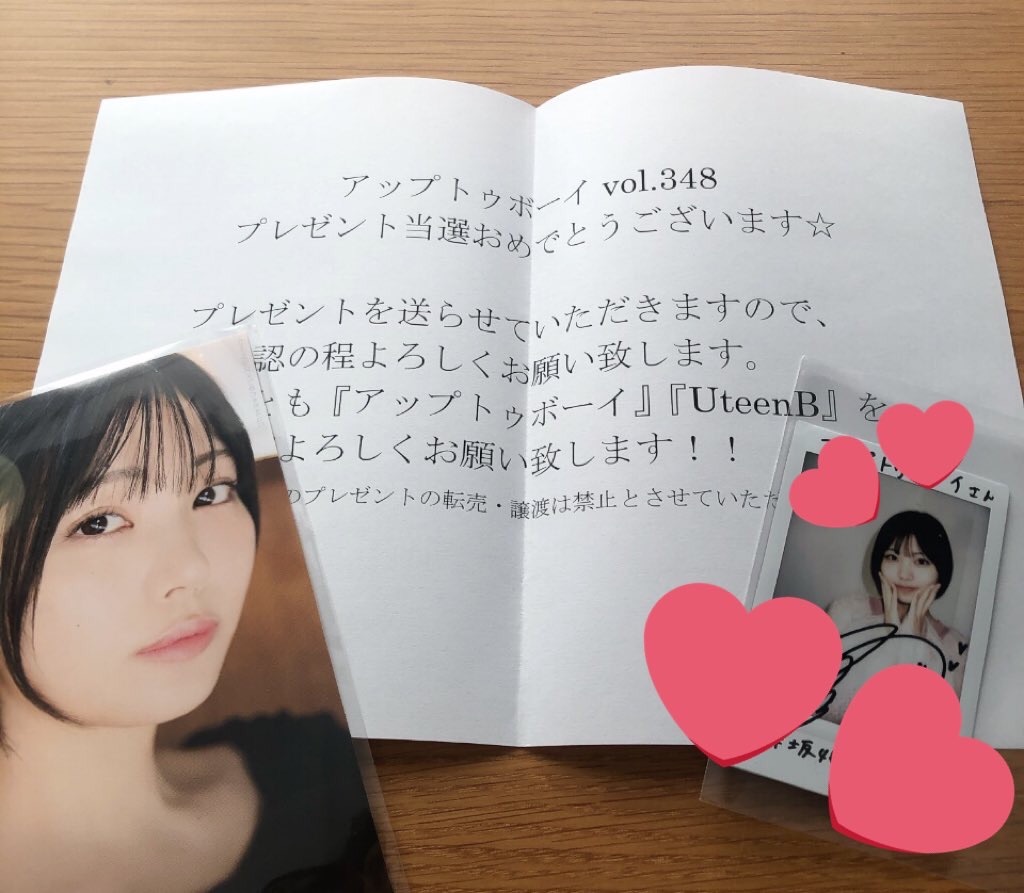 アップトゥボーイ vol.348
プレゼント当選おめでとうございます☆
プレゼントを送らせていただきますので、
認の程よろしくお願い致します。
とも『アップトゥボーイ』『UteenB』を
よろしくお願い致します！！
のプレゼントの転売・譲渡は禁止とさせていただ
イさん
坂4